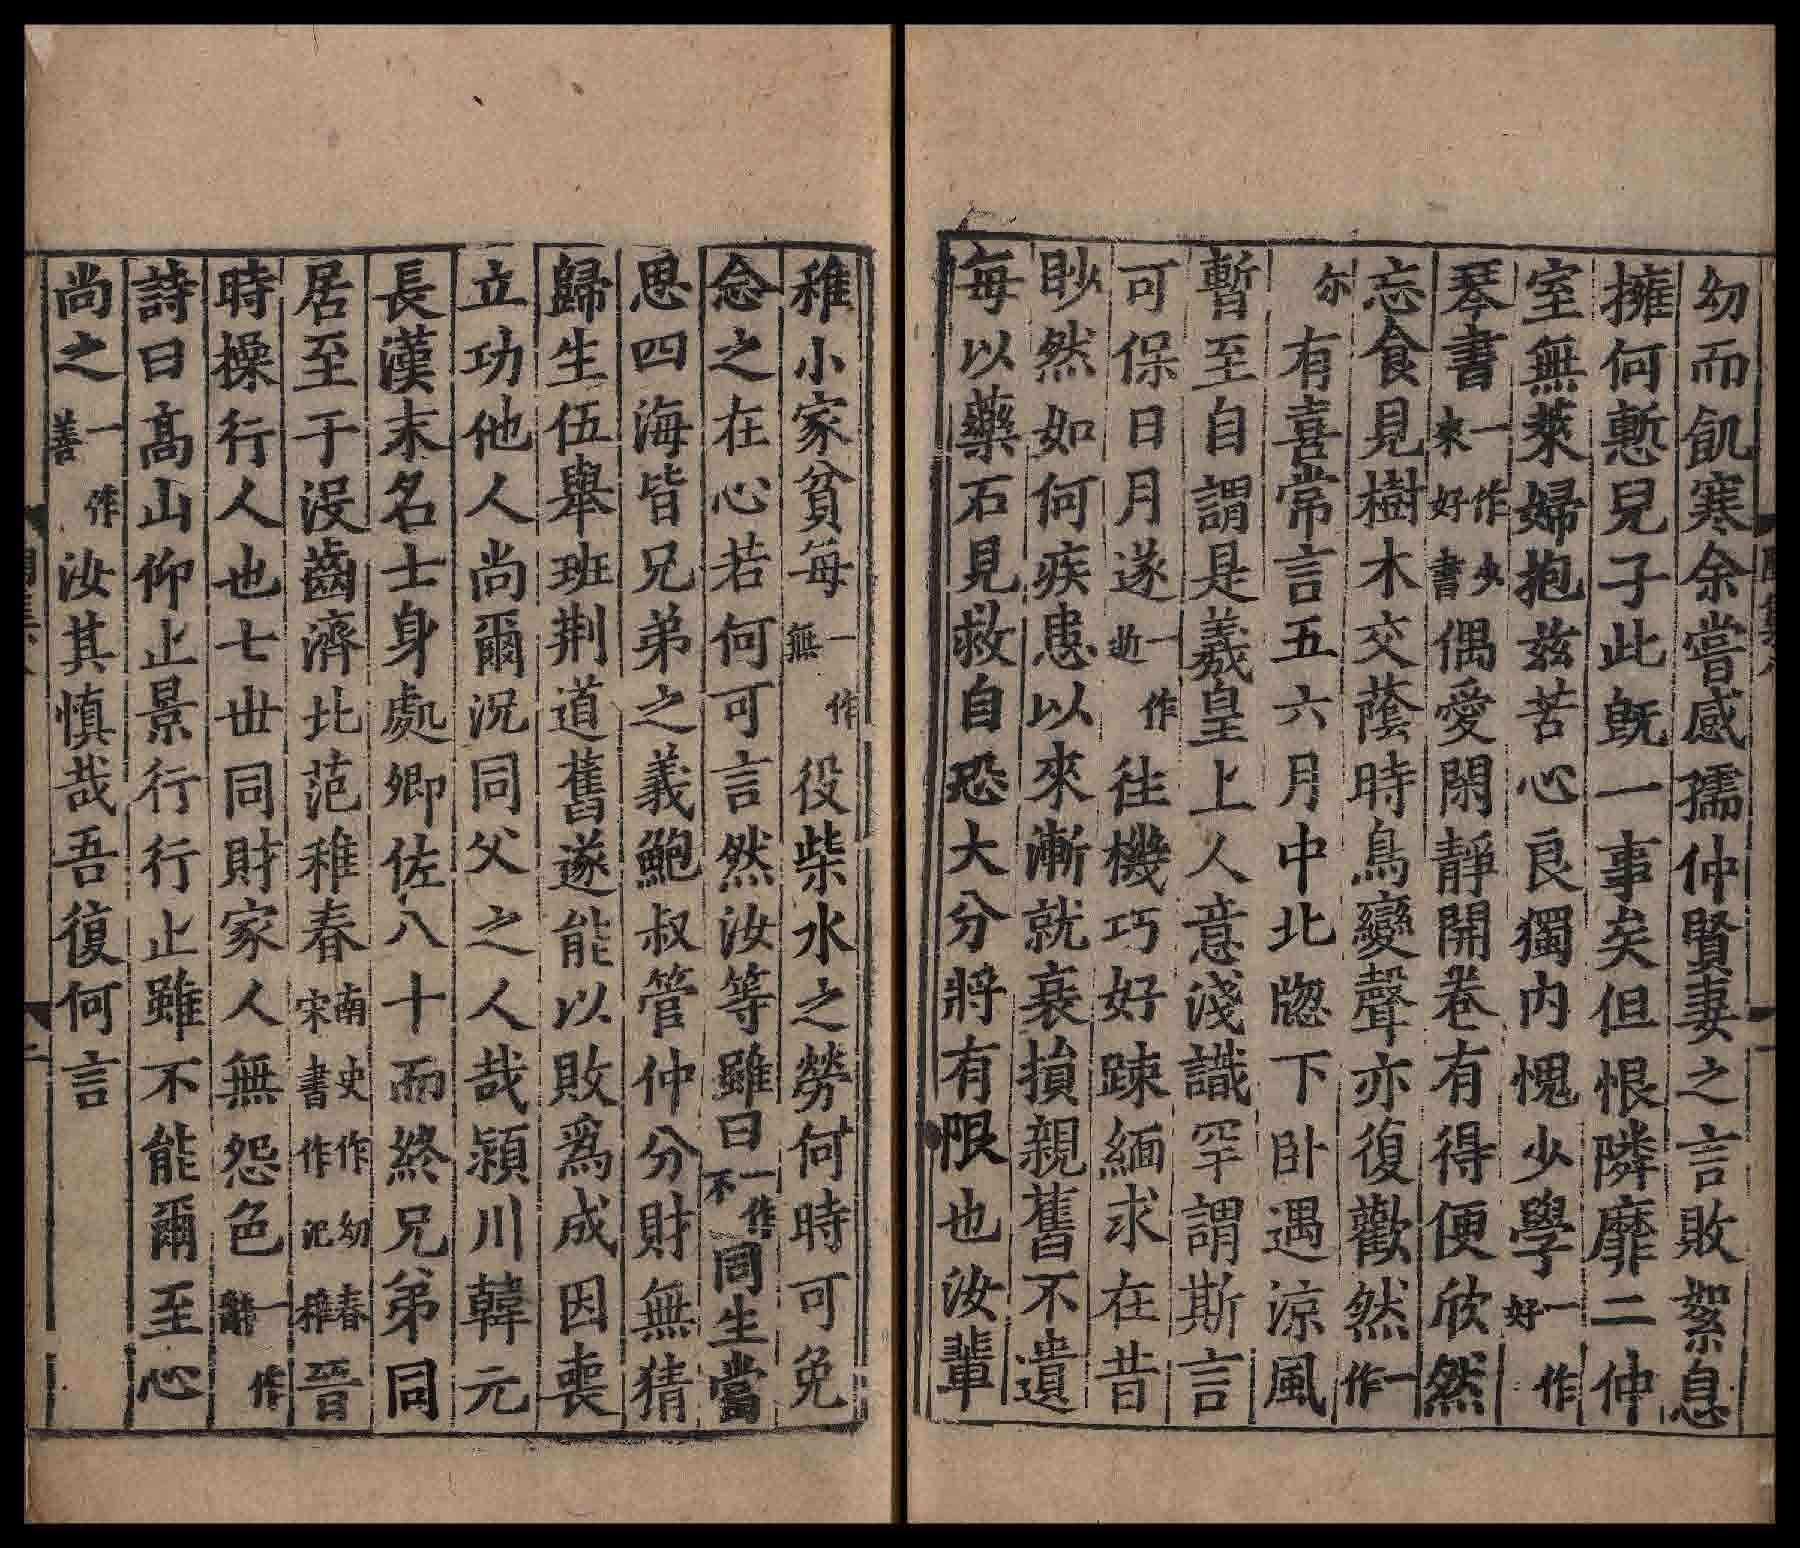 幼而飢寒余嘗感孺仲賢妻之言敗絮息
擁何慙兒子此旣一事矣但恨隣靡二仲
室無萊婦抱兹苦心良獨內愧少學一作好
琴書一作少來好書偶愛閑靜開卷有得便欣然
忘食見樹木交蔭時鳥變聲亦復歡然一作
尓有喜常言五六月中北牎下卧遇涼風
暫至自謂是羲皇上人意淺識罕謂斯言
可保日月遂一作逝往機巧好踈緬求在昔
眇然如何疾患以來漸就衰損親舊不遺
每以藥石見救自恐大分將有限也汝輩
稚小家貧每一作無役柴水之勞何時可免
念之在心若何可言然汝等雖曰一作不同生當
思四海皆兄弟之義鮑叔管仲分財無猜
歸生伍舉班荆道舊遂能以敗爲成因喪
立功他人尚爾況同父之人哉潁川韓元
長漢末名士身處卿佐八十而終兄弟同
居至于沒齒濟北范稚春南史作幼春宋書作汜稚晉
時操行人也七世同財家人無怨色一作辭
詩曰髙山仰止景行行止雖不能爾至心
尚之一作善汝其慎哉吾復何言